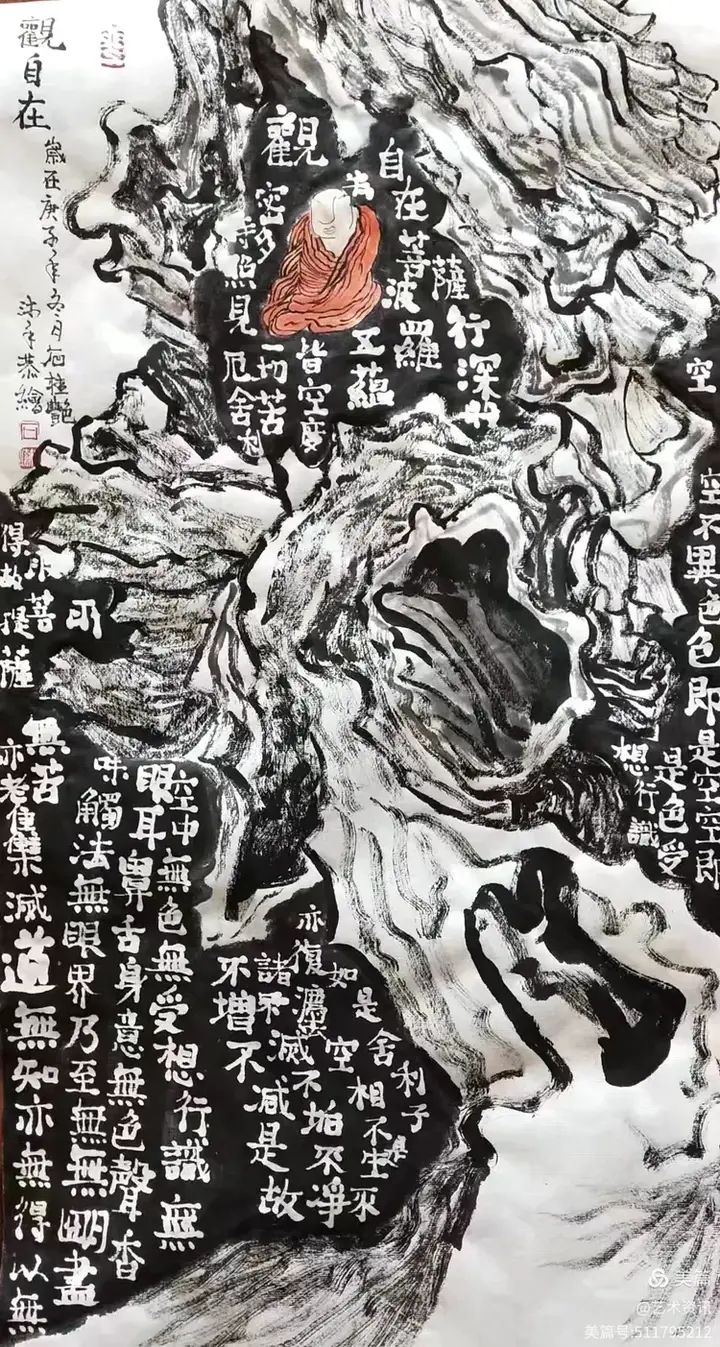 觀自在
歲在庚子年冬月石桂艷
沐手恭繪
觀
自在菩
薩
行深
波羅
密多
時照見
五蘊
皆空度
一切苦
厄舍利
空
空不異色色即是空空即
是色受
想行識
亦復
如是
舍利子是
諸法空相不生不
滅不垢不淨
不增不減是故
空中無色無受想行識無
眼耳鼻舌身意無色聲香
味觸法無眼界乃至無無明盡
無苦集滅道無知亦無得以無
亦老
得故
菩
提薩
美篇
@艺术资讯
美篇号:511795212